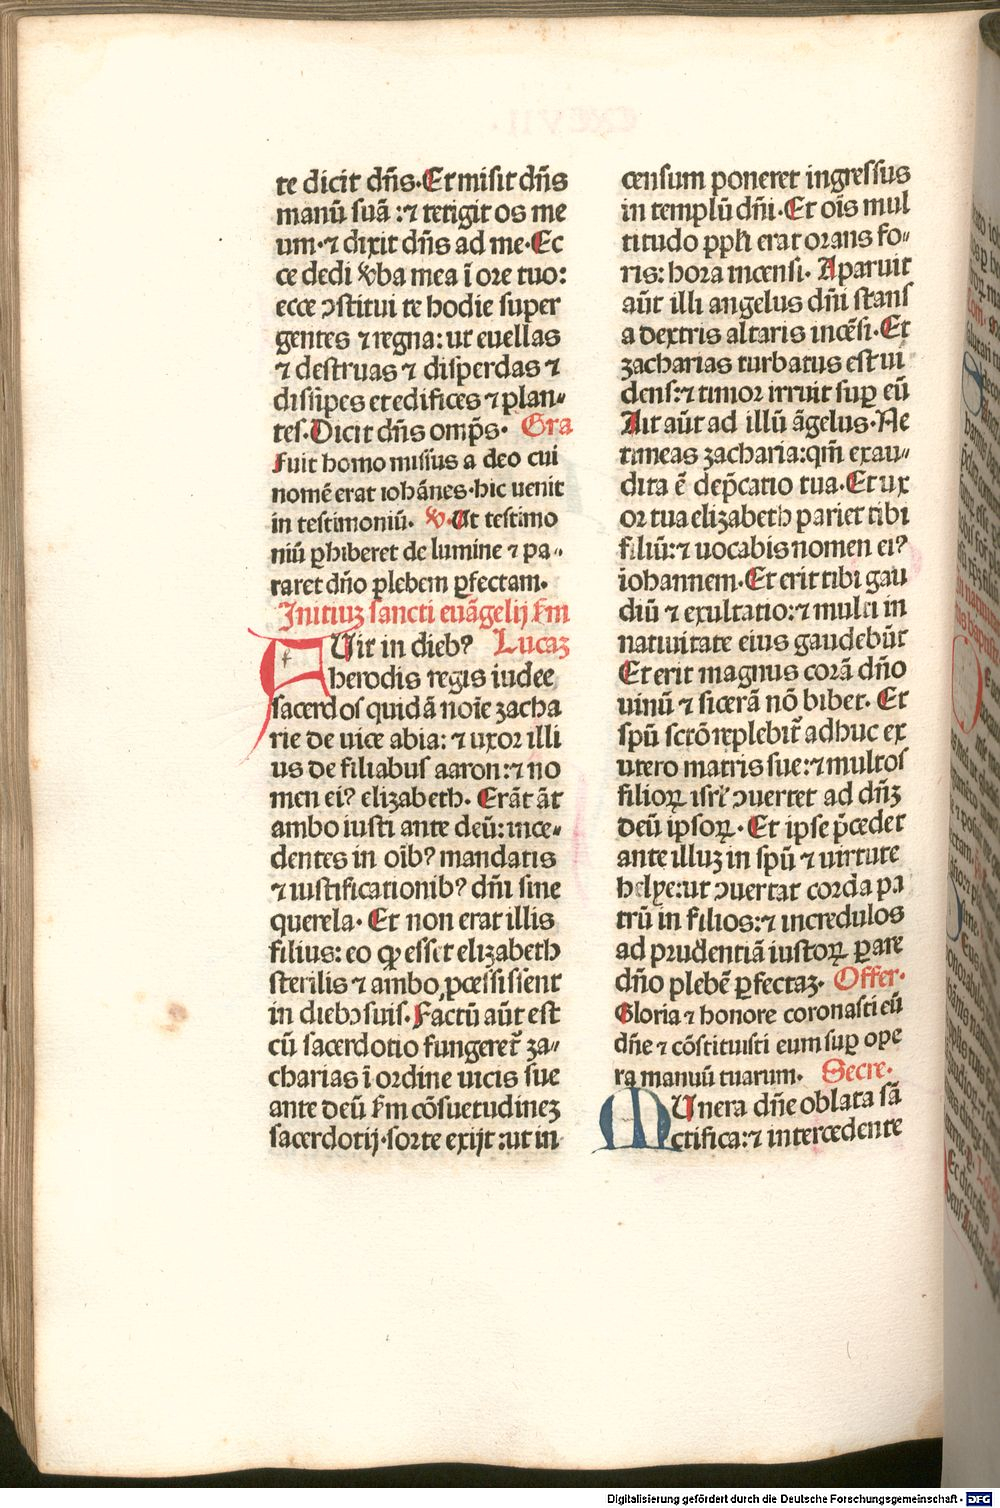 te dicit dñs. Et misit dñs
manū suā : ⁊ tetigit os me
um. ⁊ dixit dñs ad me. Ec
ce dedi v̄ba mea ī ore tuo:
ecce ꝯstitui te hodie super
gentes ⁊ regna: ut euellas
⁊ destruas ⁊ disperdas ⁊
dissipes et edifices ⁊ plan-
tes. Dicit dñs omp̄s. Gra
Fuit homo missus a deo cui
nomē erat iohānes. hic uenit
in testimoniū. v̄. Ut testimo
niū ꝑhiberet de lumine ⁊ pa-
raret dño plebem ꝑfectam.
Initiuꝫ sancti euāgelij ẜm
FUit in dieb⁹ Lucaꝫ
herodis regis iudee
sacerdos quidā noīe zacha
rie de uice abia: ⁊ uxor illi
us de filiabus aaron: ⁊ no
men ei⁹ elizabeth. Erāt āt
ambo iusti ante deū: ince-
dentes in oīb⁹ mandatis
⁊ iustificationib⁹ dñi sine
querela. Et non erat illis
filius: eo ꝙ esset elizabeth
sterilis ⁊ ambo ꝓcessissent
in diebꝫ suis. Factū aūt est
cū sacerdotio fungeret̄ za-
charias ī ordine uicis sue
ante deū ẜm cōsuetudineꝫ
sacerdotij. sorte exijt : ut in
censum poneret ingressus
in templū dñi. Et oīs mul
titudo ppl̄i erat orans fo-
ris: hora incensi. Aparuit
aūt illi angelus dñi stans
a dextris altaris incēsi. Et
zacharias turbatus est ui
dens: ⁊ timor irruit suꝑ eū
Ait aūt ad illū āgelus. Ne
timeas zacharia: qm̄ exau-
dita ē dep̄catio tua. Et ux
or tua elizabeth pariet tibi
filiū: ⁊ uocabis nomen ei⁹
iohannem. Et erit tibi gau
diū ⁊ exultatio: ⁊ multi in
natiuitate eius gaudebūt
Et erit magnus corā dño
uinū ⁊ sicerā nō bibet. Et
spū sctō replebit̄ adhuc ex
utero matris sue: ⁊ multos
filioꝝ isrl̄ ꝯuertet ad dñꝫ
deū ipsoꝝ. Et ipse p̄cedet
ante illuꝫ in spū ⁊ uirtute
helye: ut ꝯuertat corda pa
trū in filios: ⁊ incredulos
ad prudentiā iustoꝝ ꝑare
dño plebē ꝑfectaꝫ. Offer.
Gloria ⁊ honore coronasti eū
dñe ⁊ cōstituisti eum suꝑ ope
ra manuū tuarum. Secre.
MUnera dñe oblata sā
ctifica: ⁊ intercedente
Digitalisierung gefördert durch die Deutsche Forschungsgemeinschaft - DFG